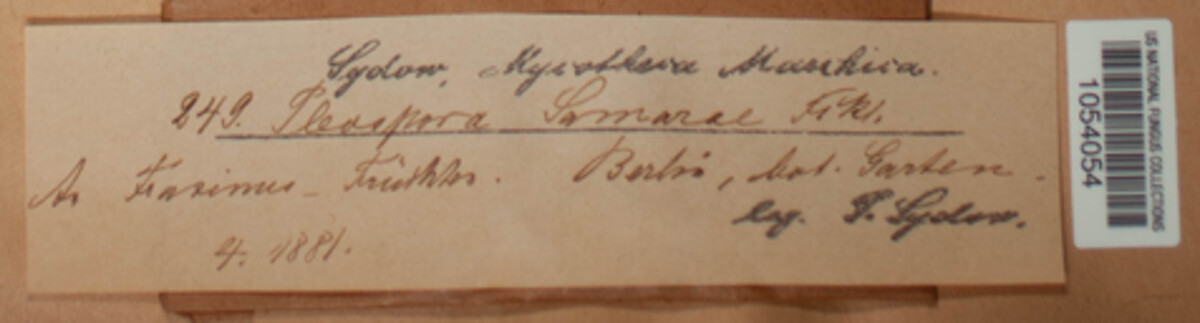 Sydow, Mycotheca Marchica.
249. Pleospora Samarae Fckl.
An Fraxinus-Früchten. Berlin, bot. Garten.
leg. P. Sydow.
4. 1881.
US NATIONAL FUNGUS COLLECTIONS
1054054